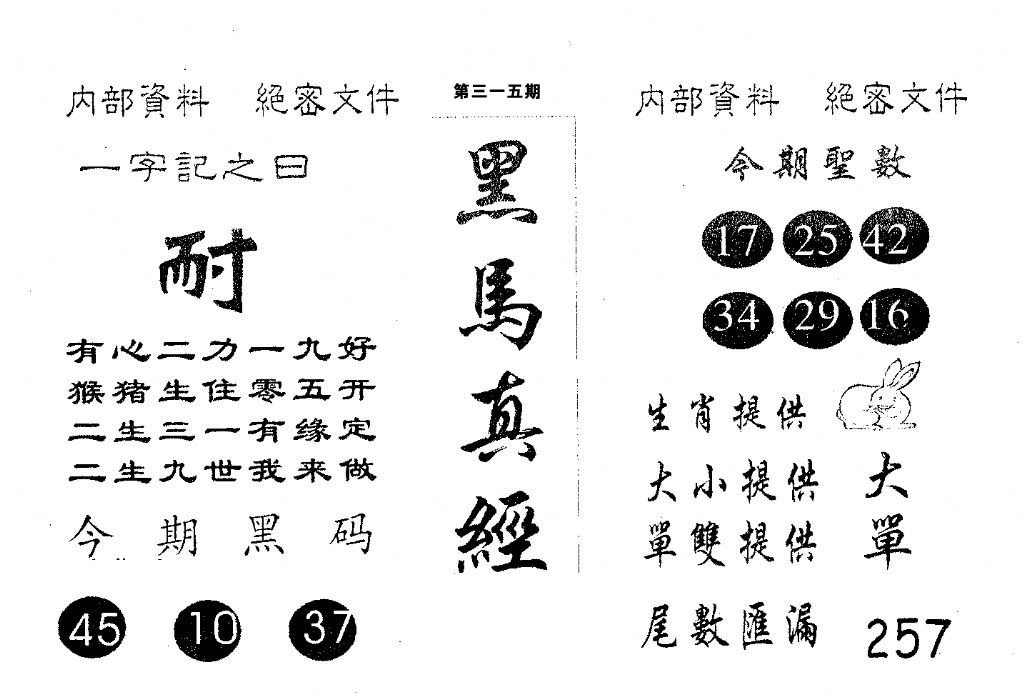 内部資料 絕密文件
一字記之曰
耐
有心二力一九好
猴猪生住零五开
二生三一有缘定
二生九世我来做
今期黑码
45 10 37
第三一五期
黑馬真經
内部資料 絕密文件
今期聖數
17 25 42
34 29 16
生肖提供
大小提供 大
單雙提供 單
尾數匯漏 257